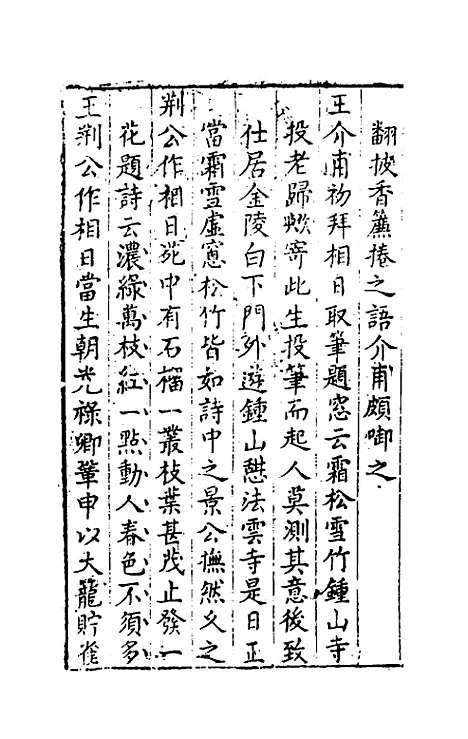 翻披香簾捲之語介甫頗啣之
王介甫初拜相日取筆題窓云霜松雪竹鍾山寺
投老歸歟寄此生投筆而起人莫測其意後致
仕居金陵白下門外遊鍾山憇法雲寺是日正
當霜雪虛窓松竹皆如詩中之景公憮然久之
荆公作相日苑中有石榴一叢枝葉甚茂止發一
花題詩云濃綠萬枝紅一點動人春色不須多
王荆公作相日當生朝光祿卿鞏申以大籠貯雀